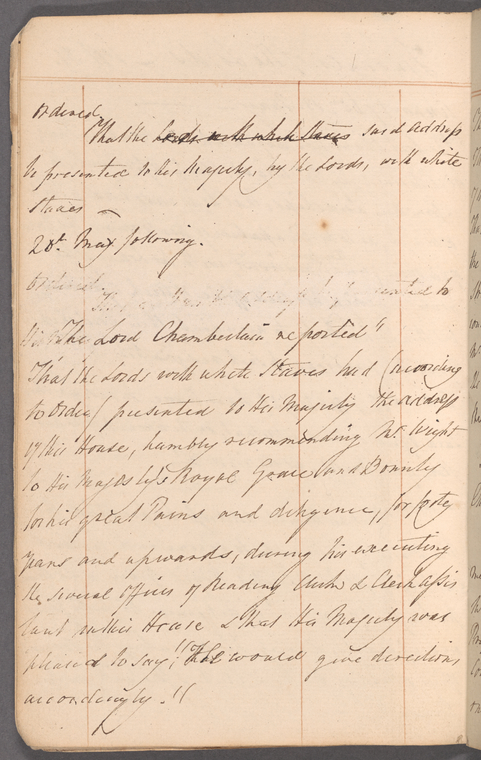 Ordered
That the Lords with white Staves said Address
be presented to His Majesty, by the Lords, with white
Staves
20th. May following.
Ordered to
"The Lord Chamberlain reported"
That the Lords with white Staves had (according
to Order) presented to His Majesty the address
of this House, humbly recommending Mr. Wight
to His Majesty's Royal Grace and Bounty
for his great Pains and diligence, for forty
years and upwards, during his executing
the several offices of Reading Clerk & Clerk assis
tant in this House & that His Majesty was
pleased to say, "He would give directions
accordingly."